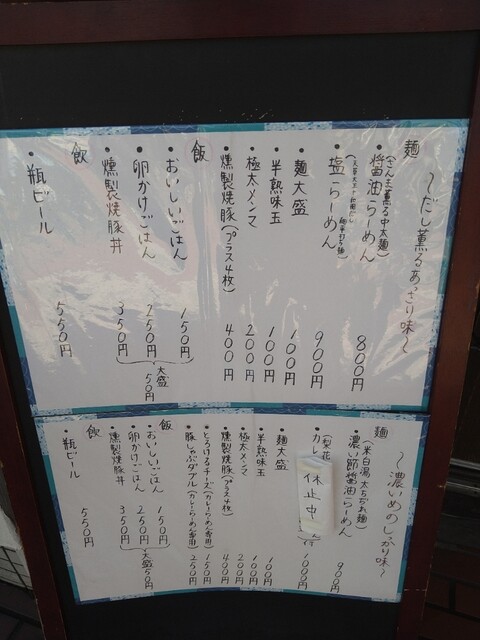 〜だし薫るあっさり味〜
麺
・醤油らーめん 800円
(さんま薫る中太麺)
・塩らーめん 900円
・麺大盛 100円
・半熟味玉 100円
・極太メンマ 200円
・燻製焼豚(プラス4枚) 400円
飯
・おいしいごはん 150円
・卵かけごはん 250円
・燻製焼豚丼 350円
大盛50円
飲
・瓶ビール 550円
〜濃いめのしっかり味〜
麺
・濃い節醤油らーめん 900円
(米白湯 太ちぢれ麺)
・カレー 1000円
休止中
・麺大盛 100円
・半熟味玉 100円
・極太メンマ 200円
・燻製焼豚(プラス4枚) 400円
・とろけるチーズ(カレーらーめん専用) 150円
・豚しゃぶダブル(カレーらーめん専用) 250円
飯
・おいしいごはん 150円
・卵かけごはん 250円
・燻製焼豚丼 350円
大盛50円
飲
・瓶ビール 550円